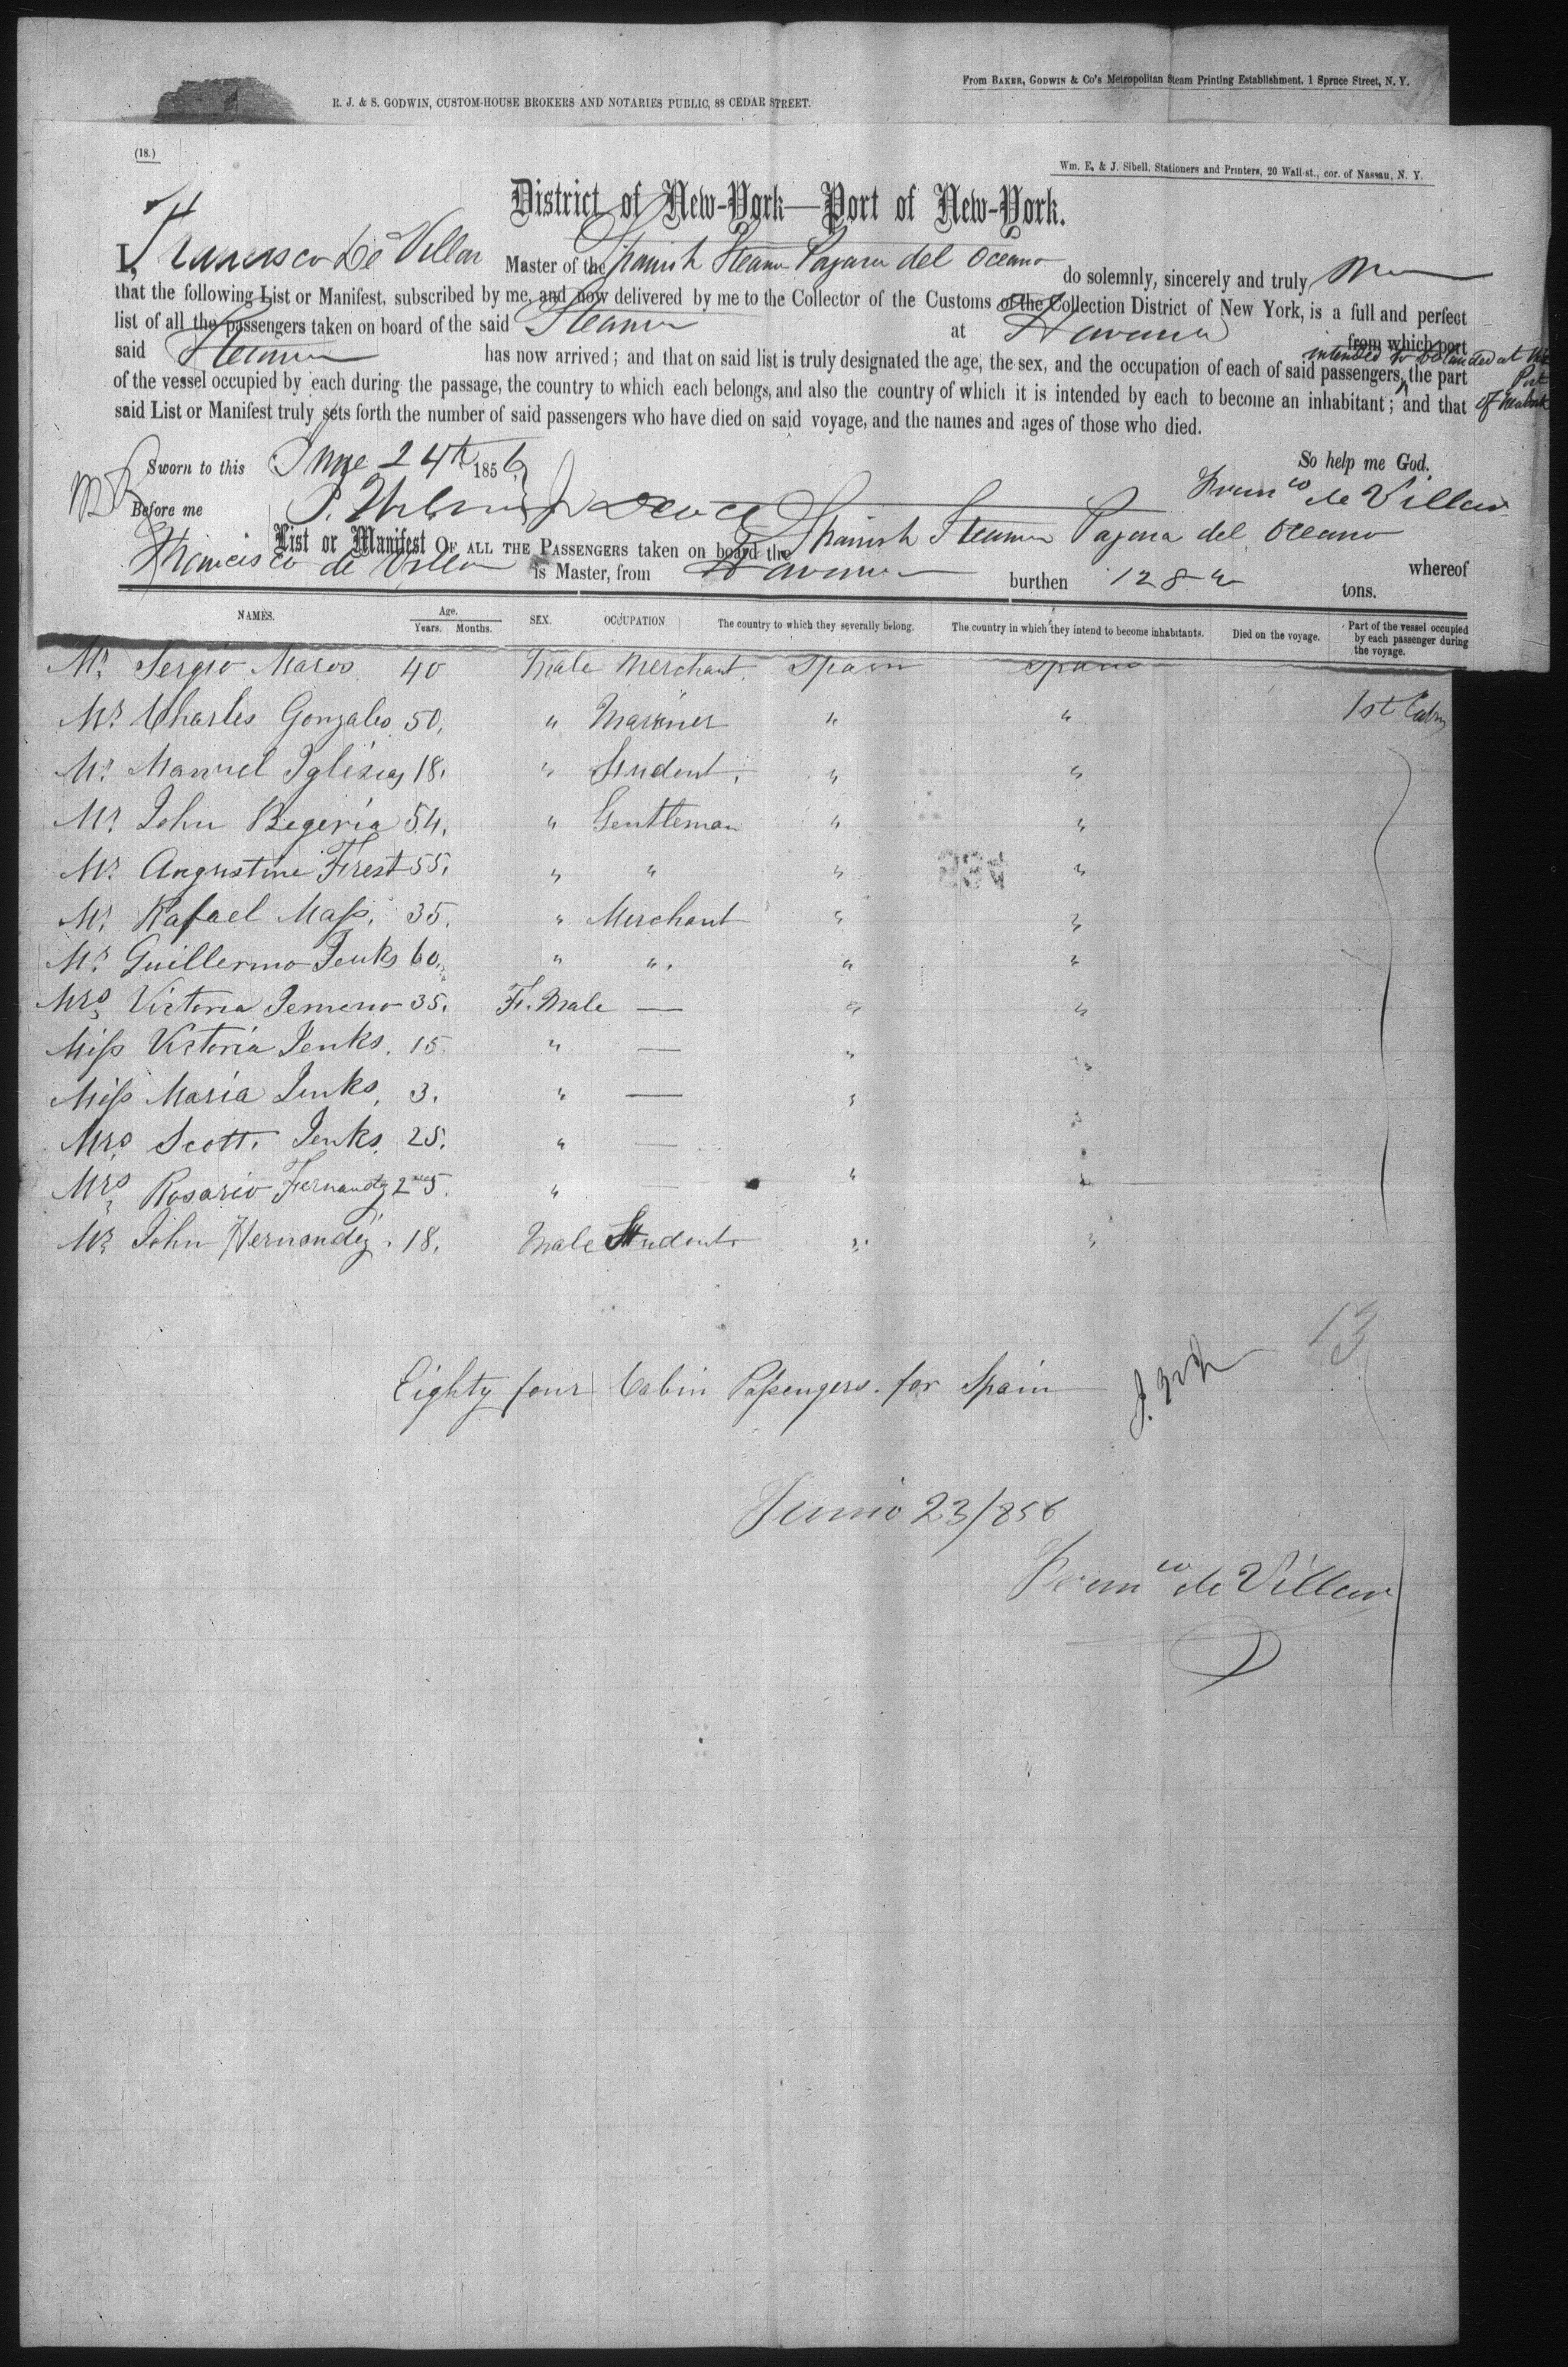 From BAKER, GODWIN & Co's Metropolitan Steam Printing Establishment, 1 Spruce Street, N. Y.
R. J. & S. GODWIN, CUSTOM-HOUSE BROKERS AND NOTARIES PUBLIC, 88 CEDAR STREET.
(18.)
Wm. E. & J. Sibell, Stationers and Printers, 20 Wall-st., cor. of Nassau, N. Y.
District of New-York—Port of New-York.
I, Francisco De Villar Master of the Spanish Steamer Pajaro del Oceano do solemnly, sincerely and truly
that the following List or Manifest, subscribed by me, and now delivered by me to the Collector of the Customs of the Collection District of New York, is a full and perfect
list of all the passengers taken on board of the said Steamer at Havana from which port
said Steamer has now arrived; and that on said list is truly designated the age, the sex, and the occupation of each of said passengers, the part
intended to be landed at the Port of
of the vessel occupied by each during the passage, the country to which each belongs, and also the country of which it is intended by each to become an inhabitant; and that
said List or Manifest truly sets forth the number of said passengers who have died on said voyage, and the names and ages of those who died.
Sworn to this June 24th 1856 So help me God.
Before me Franco de Villar
List or Manifest OF ALL THE PASSENGERS taken on board the Spanish Steamer Pajaro del Oceano
Francisco de Villar is Master, from Havana burthen tons. whereof
NAMES. Age. Years. Months. SEX. OCCUPATION The country to which they severally belong. The country in which they intend to become inhabitants. Died on the voyage. Part of the vessel occupied by each passenger during the voyage.
Mr. Sergio Maros 40 Male Merchant. Spain Spain
Mr. Charles Gonzales 50. " Mariner " " 1st Cabin
Mr. Manuel Iglesias 18. " Student. " "
Mr. John Begeria 54. " Gentleman " "
Mr. Angustine Frest 55. " " " "
Mr. Rafael Mass. 35. " Merchant " "
Mr. Guillermo Jenks 60. " " " "
Mrs Victoria Jemeno 35. Fe. Male — " "
Miss Victoria Jenks. 15 " — " "
Miss Maria Jenks, 3. " — " "
Mrs Scott. Jenks. 25. " — "
Mrs Rosario Fernandz 25. " — " "
Mr. John Hernandez. 18. Male Student " "
13
Eighty four Cabin Passengers. for Spain
Junio 23/856
Franco de Villar